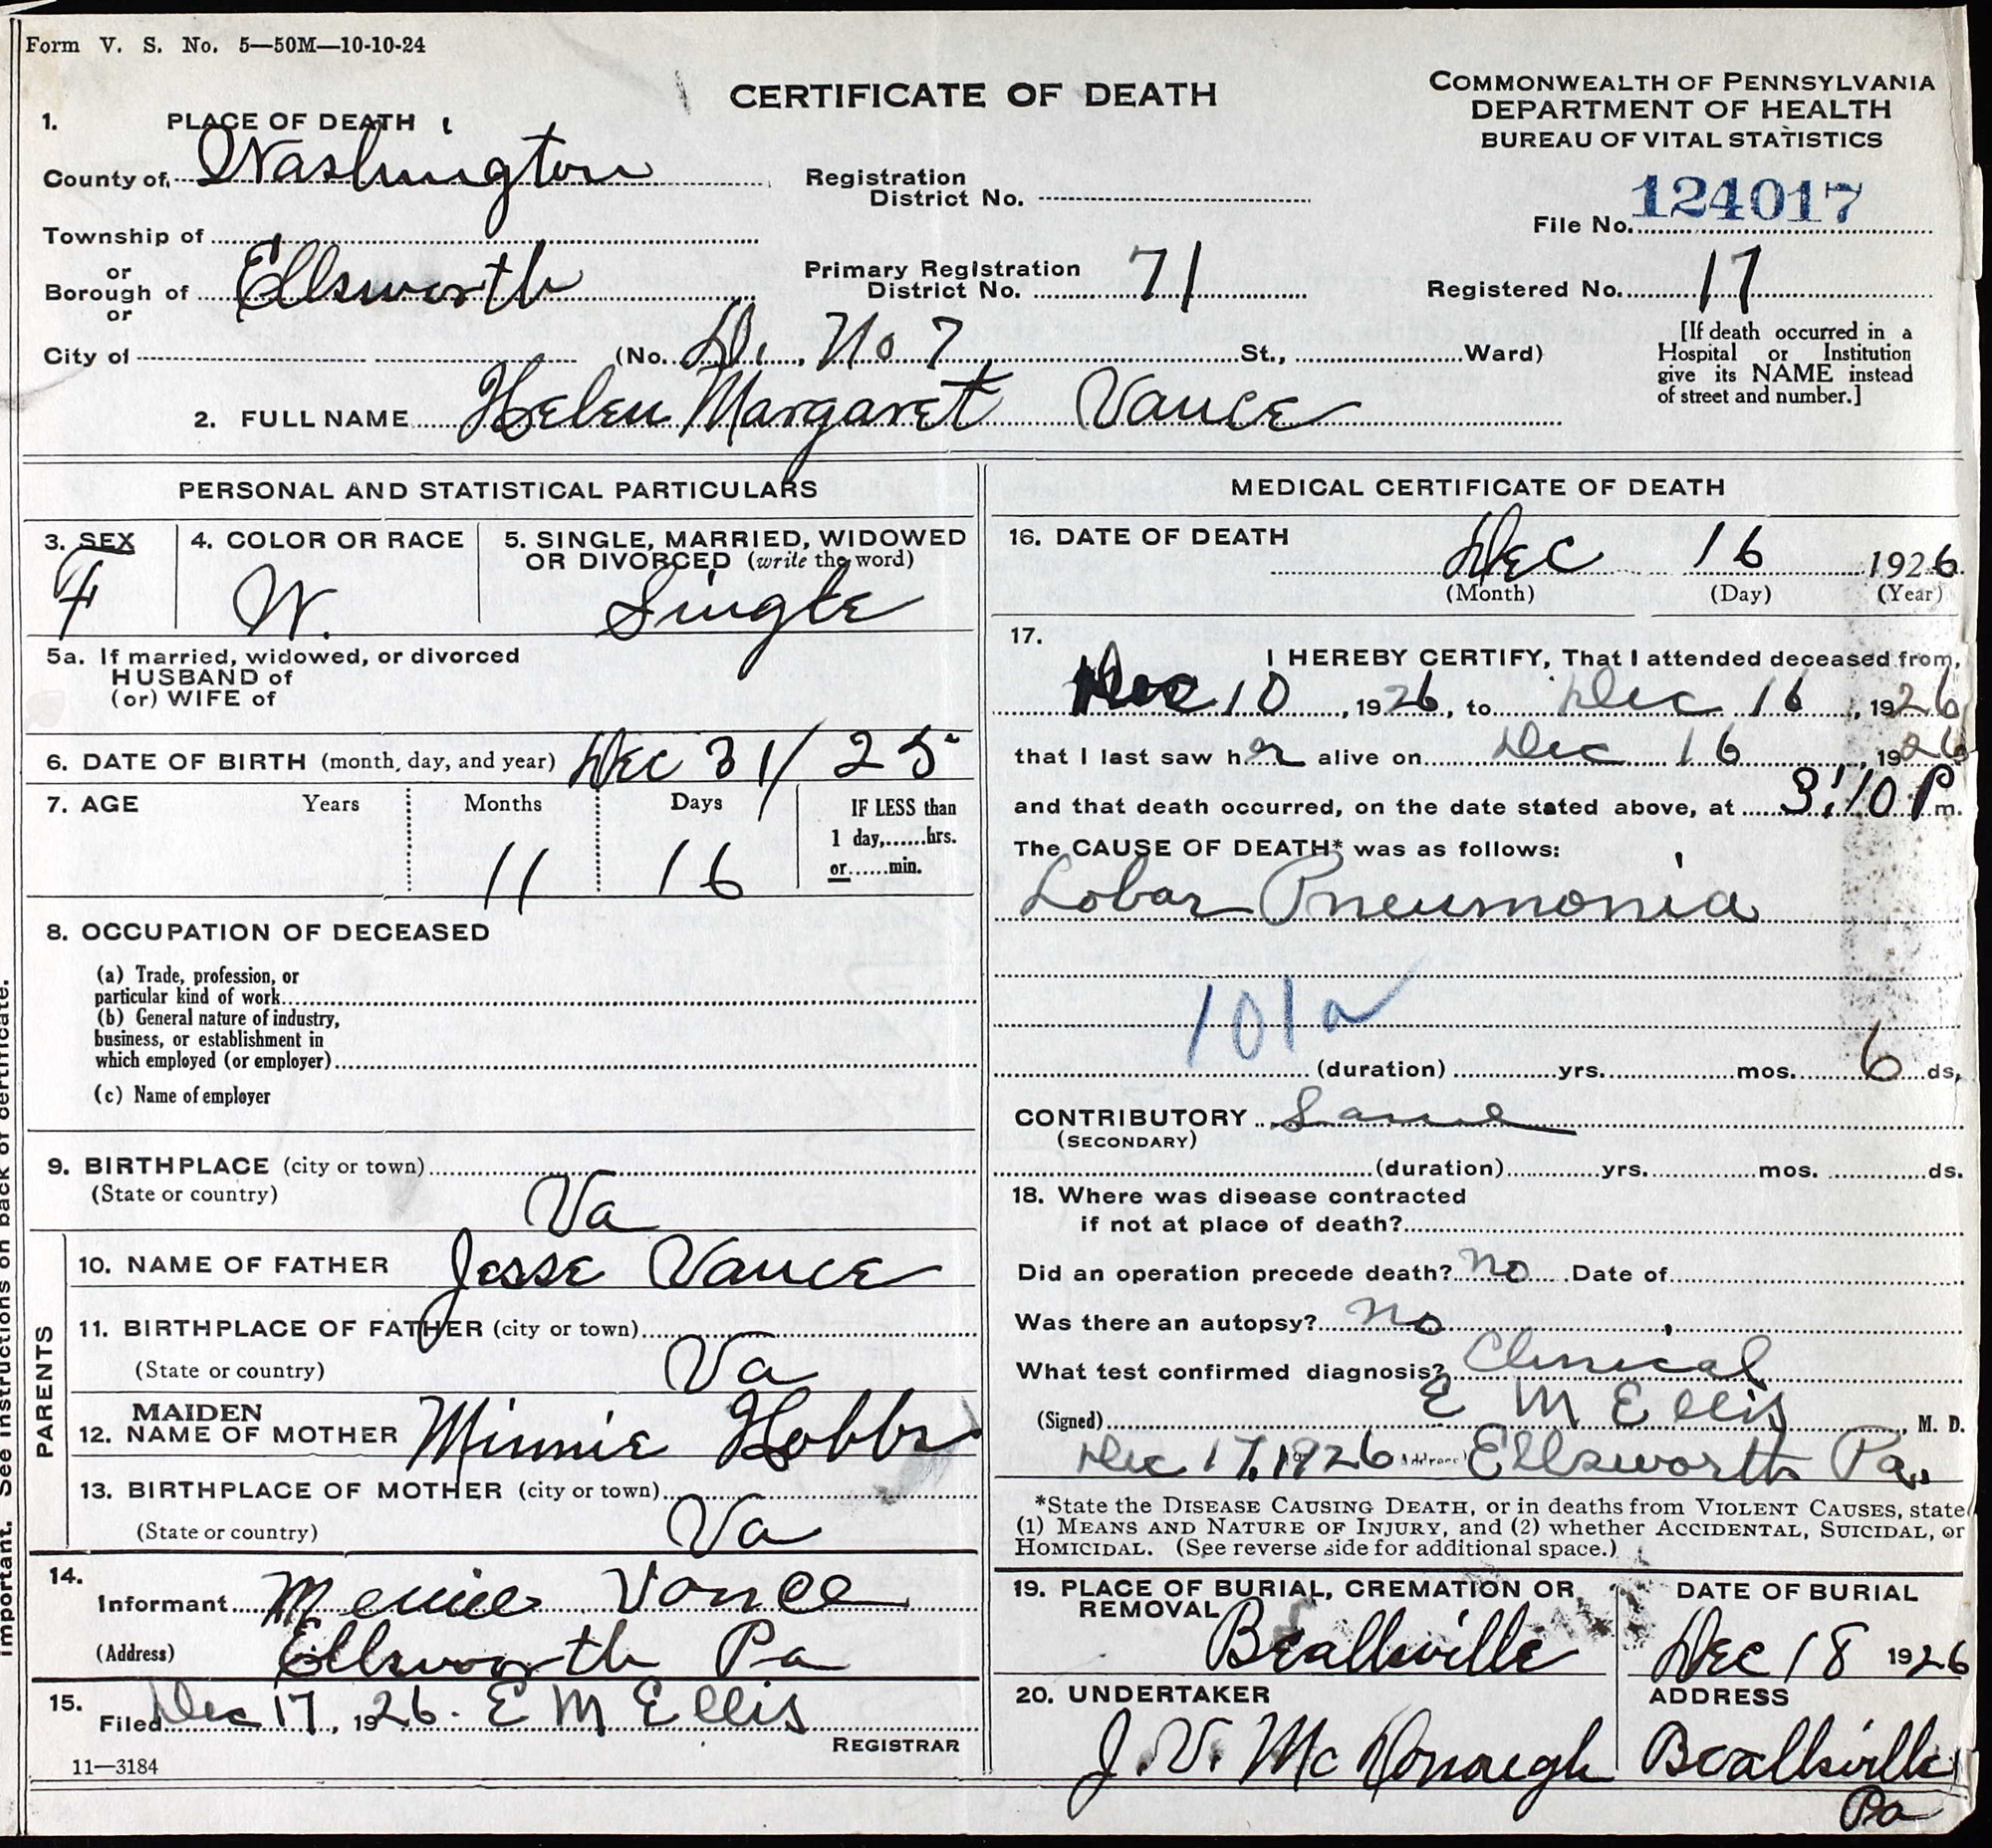 Form V. S. No. 5—50M—10-10-24
CERTIFICATE OF DEATH
COMMONWEALTH OF PENNSYLVANIA
DEPARTMENT OF HEALTH
BUREAU OF VITAL STATISTICS
1. PLACE OF DEATH
County of Washington
Registration District No.
File No. 124017
Township of
or
Borough of Ellsworth
or
Primary Registration District No. 71
Registered No. 17
City of (No. D. No 7 St., Ward)
[If death occurred in a Hospital or Institution give its NAME instead of street and number.]
2. FULL NAME Helen Margaret Vance
PERSONAL AND STATISTICAL PARTICULARS
3. SEX
F
4. COLOR OR RACE
W.
5. SINGLE, MARRIED, WIDOWED OR DIVORCED (write the word)
Single
5a. If married, widowed, or divorced
HUSBAND of
(or) WIFE of
6. DATE OF BIRTH (month, day, and year) Dec 31/25
7. AGE Years Months Days
11 16
IF LESS than
1 day,......hrs.
or......min.
8. OCCUPATION OF DECEASED
(a) Trade, profession, or
particular kind of work
(b) General nature of industry,
business, or establishment in
which employed (or employer)
(c) Name of employer
9. BIRTHPLACE (city or town)
(State or country) Va
PARENTS
10. NAME OF FATHER Jesse Vance
11. BIRTHPLACE OF FATHER (city or town)
(State or country) Va
12. MAIDEN NAME OF MOTHER Minnie Hobbs
13. BIRTHPLACE OF MOTHER (city or town)
(State or country) Va
14.
Informant Vance
(Address) Ellsworth Pa
15.
Filed Dec 17, 1926. E M Ellis
REGISTRAR
11—3184
MEDICAL CERTIFICATE OF DEATH
16. DATE OF DEATH Dec 16 1926
(Month) (Day) (Year)
17.
I HEREBY CERTIFY, That I attended deceased from,
Dec 10, 1926, to Dec 16, 1926
that I last saw her alive on Dec 16, 1926
and that death occurred, on the date stated above, at 3:10 P m.
The CAUSE OF DEATH* was as follows:
Lobar Pneumonia
101a
(duration) yrs. mos. 6 ds.
CONTRIBUTORY Same
(SECONDARY)
(duration) yrs. mos. ds.
18. Where was disease contracted
if not at place of death?
Did an operation precede death? No Date of
Was there an autopsy? No
What test confirmed diagnosis? Clinical
(Signed) E M Ellis, M. D.
Dec 17, 1926 (Address) Ellsworth Pa.
*State the DISEASE CAUSING DEATH, or in deaths from VIOLENT CAUSES, state
(1) MEANS AND NATURE OF INJURY, and (2) whether ACCIDENTAL, SUICIDAL, or
HOMICIDAL. (See reverse side for additional space.)
19. PLACE OF BURIAL, CREMATION OR REMOVAL
Beallsville
DATE OF BURIAL
Dec 18 1926
20. UNDERTAKER
J. V. McDonough
ADDRESS
Beallsville
Pa
important. See instructions on back of certificate.